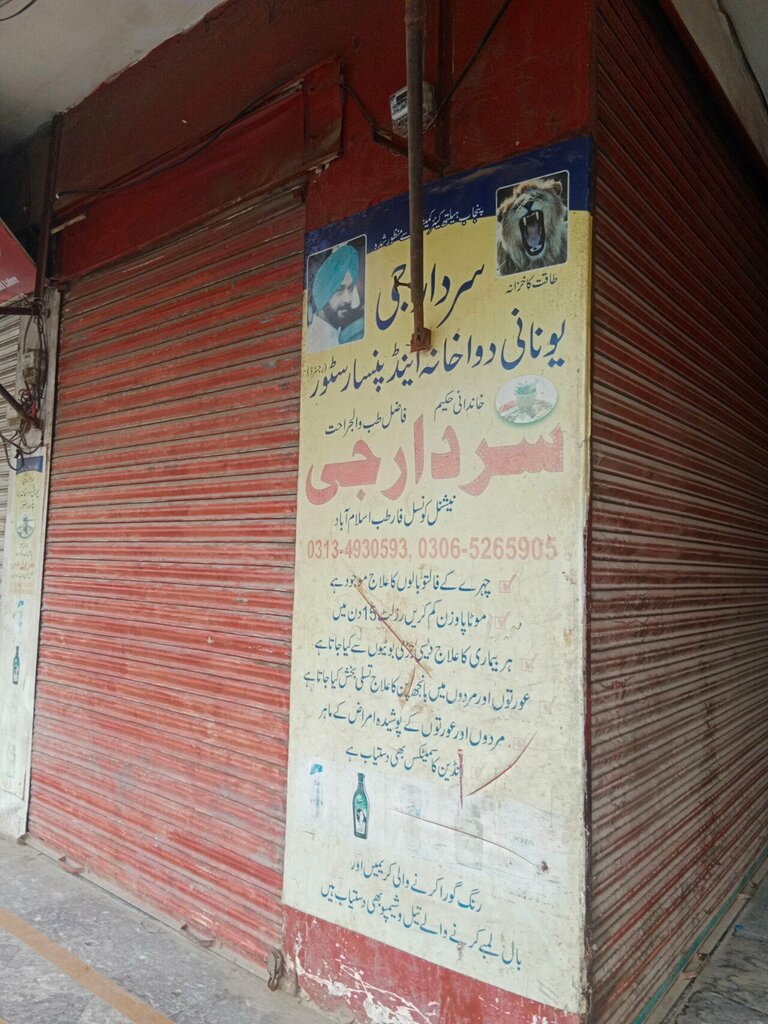 پنجاب ہیلتھ کیئر کمیشن سے منظور شدہ
طاقت کا خزانہ
سردار جی
یونانی دواخانہ اینڈ پنسار سٹور (رجسٹرڈ)
خاندانی حکیم
فاضل طب والجراحت
سردار جی
نیشنل کونسل فار طب اسلام آباد
0313-4930593, 0306-5265905
چہرے کے فالتو بالوں کا علاج موجود ہے
موٹاپا وزن کم کریں رزلٹ 15 دن میں
ہر بیماری کا علاج دیسی جڑی بوٹیوں سے کیا جاتا ہے
عورتوں اور مردوں میں بانجھ پن کا علاج تسلی بخش کیا جاتا ہے
مردوں اور عورتوں کے پوشیدہ امراض کے ماہر
انڈین کاسمیٹکس بھی دستیاب ہے
POND'S
رنگ گورا کرنے والی کریمیں اور
بال لمبے کرنے والے تیل و شیمپو بھی دستیاب ہیں